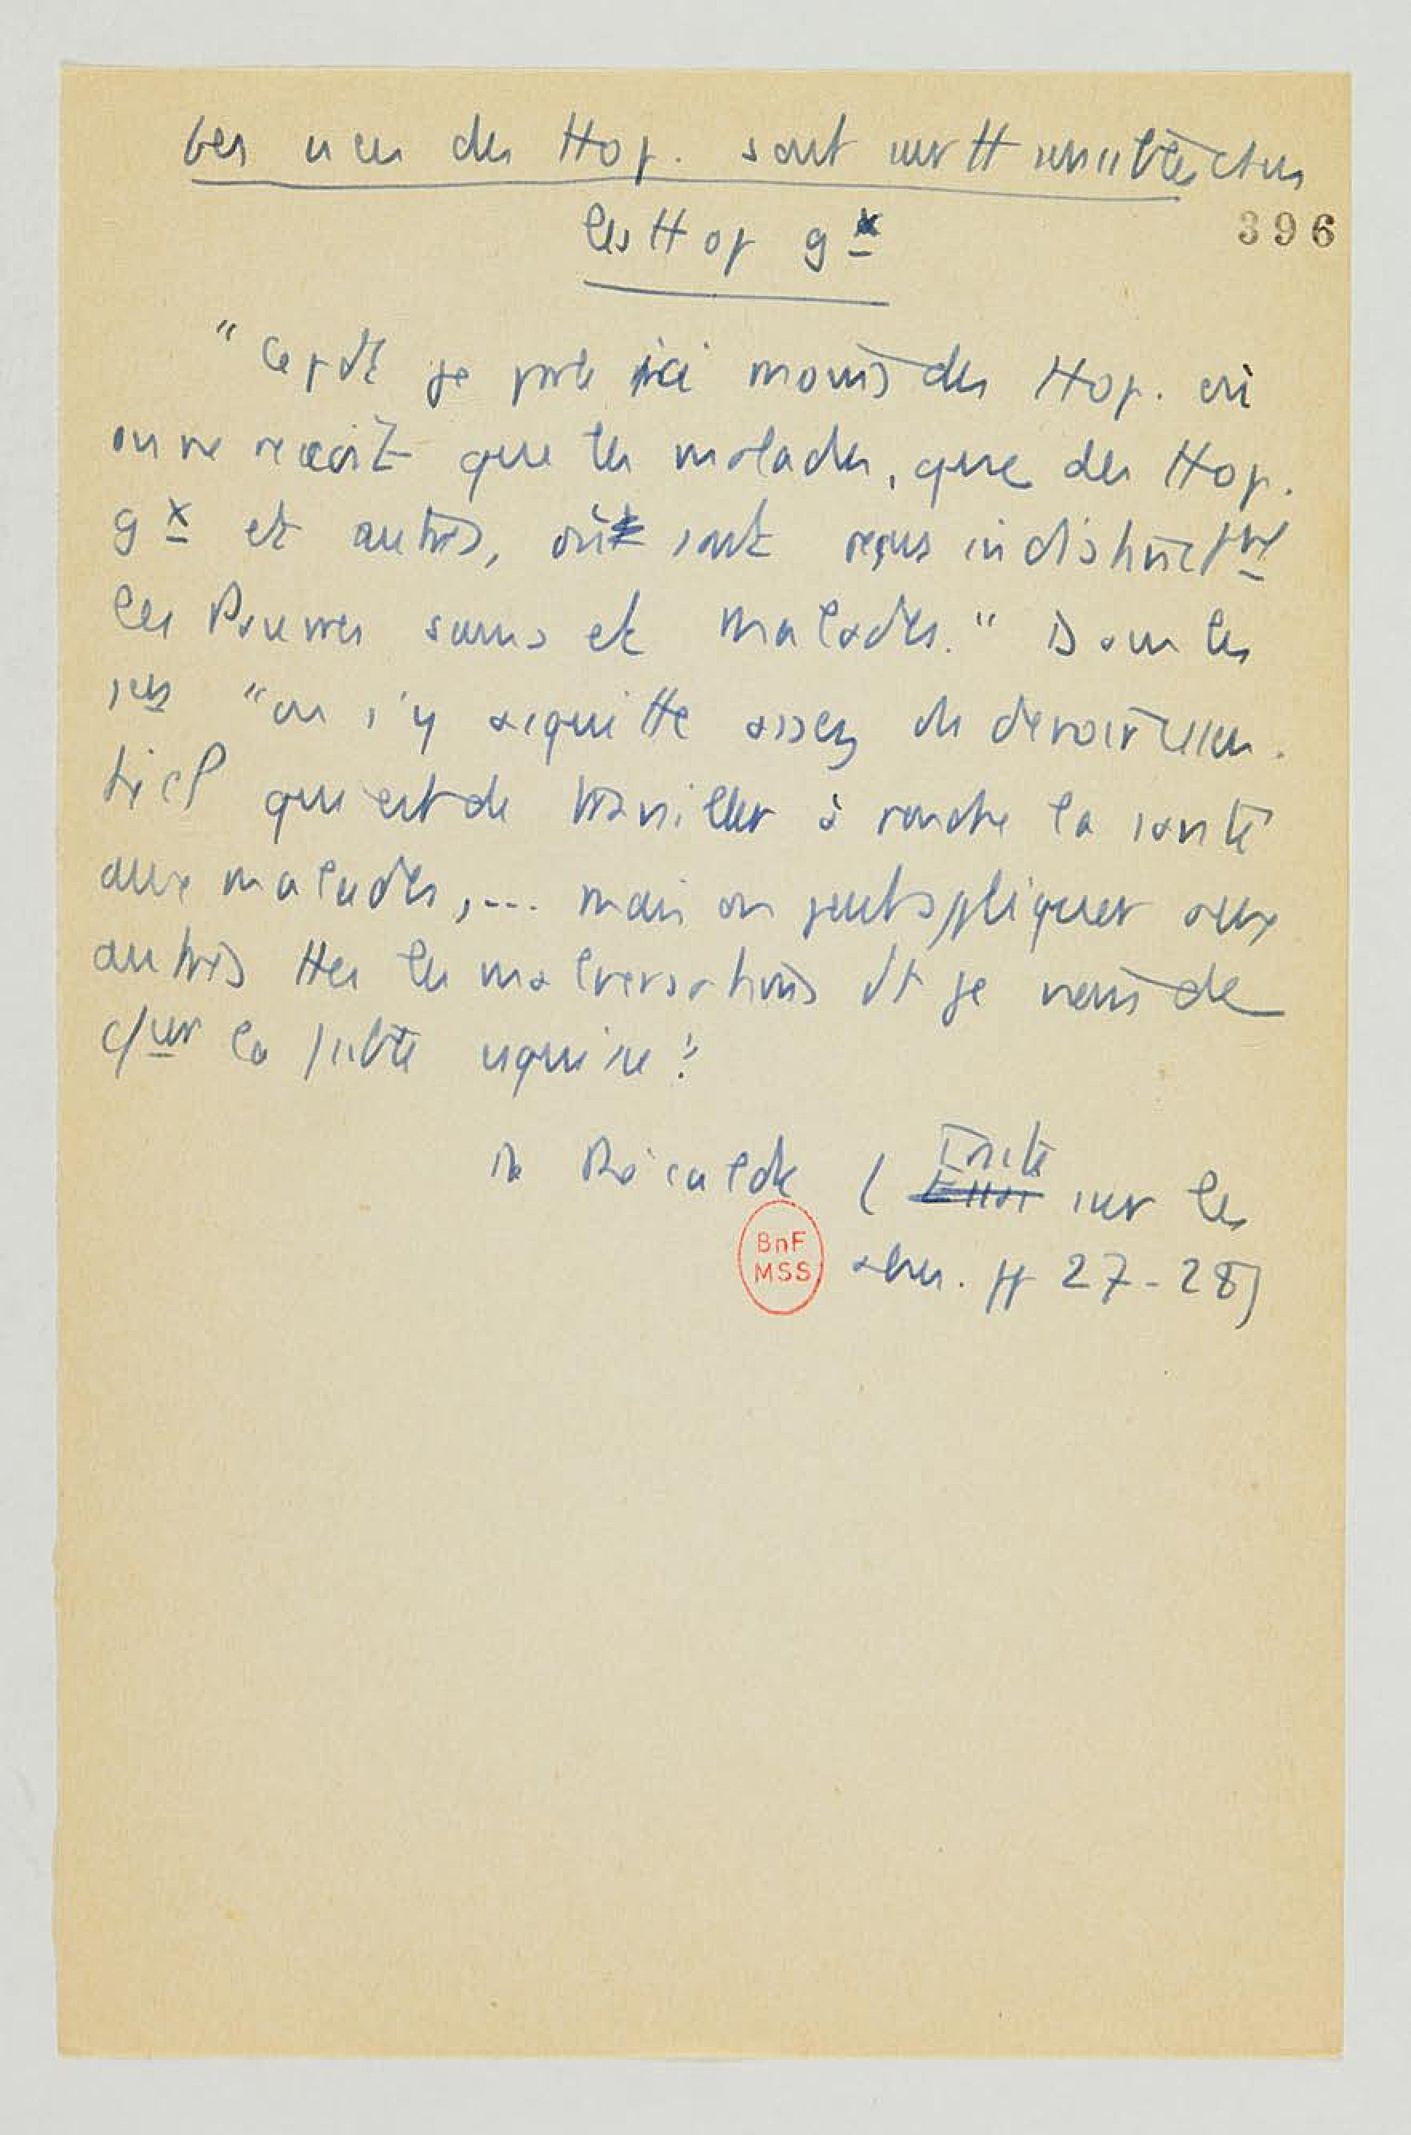 Les vices des Hop. sont surtt sensibles dans
les Hop gx
396
" Cepdt je parle ici moins des Hop. où
on ne reçoit que les malades, que des Hop.
gx et autres, où sont reçus indistinctmt
les Pauvres sains et malades." Dans les
1ers "on s'y acquitte assez du devoir essen-
tiel qui est de travailler à rendre la santé
aux malades, ... mais on peut appliquer aux
autres ttes les malversations dt je viens de
la
de Récalde ( Essai Traité sur les
abus. pp 27-28)
BnF
MSS